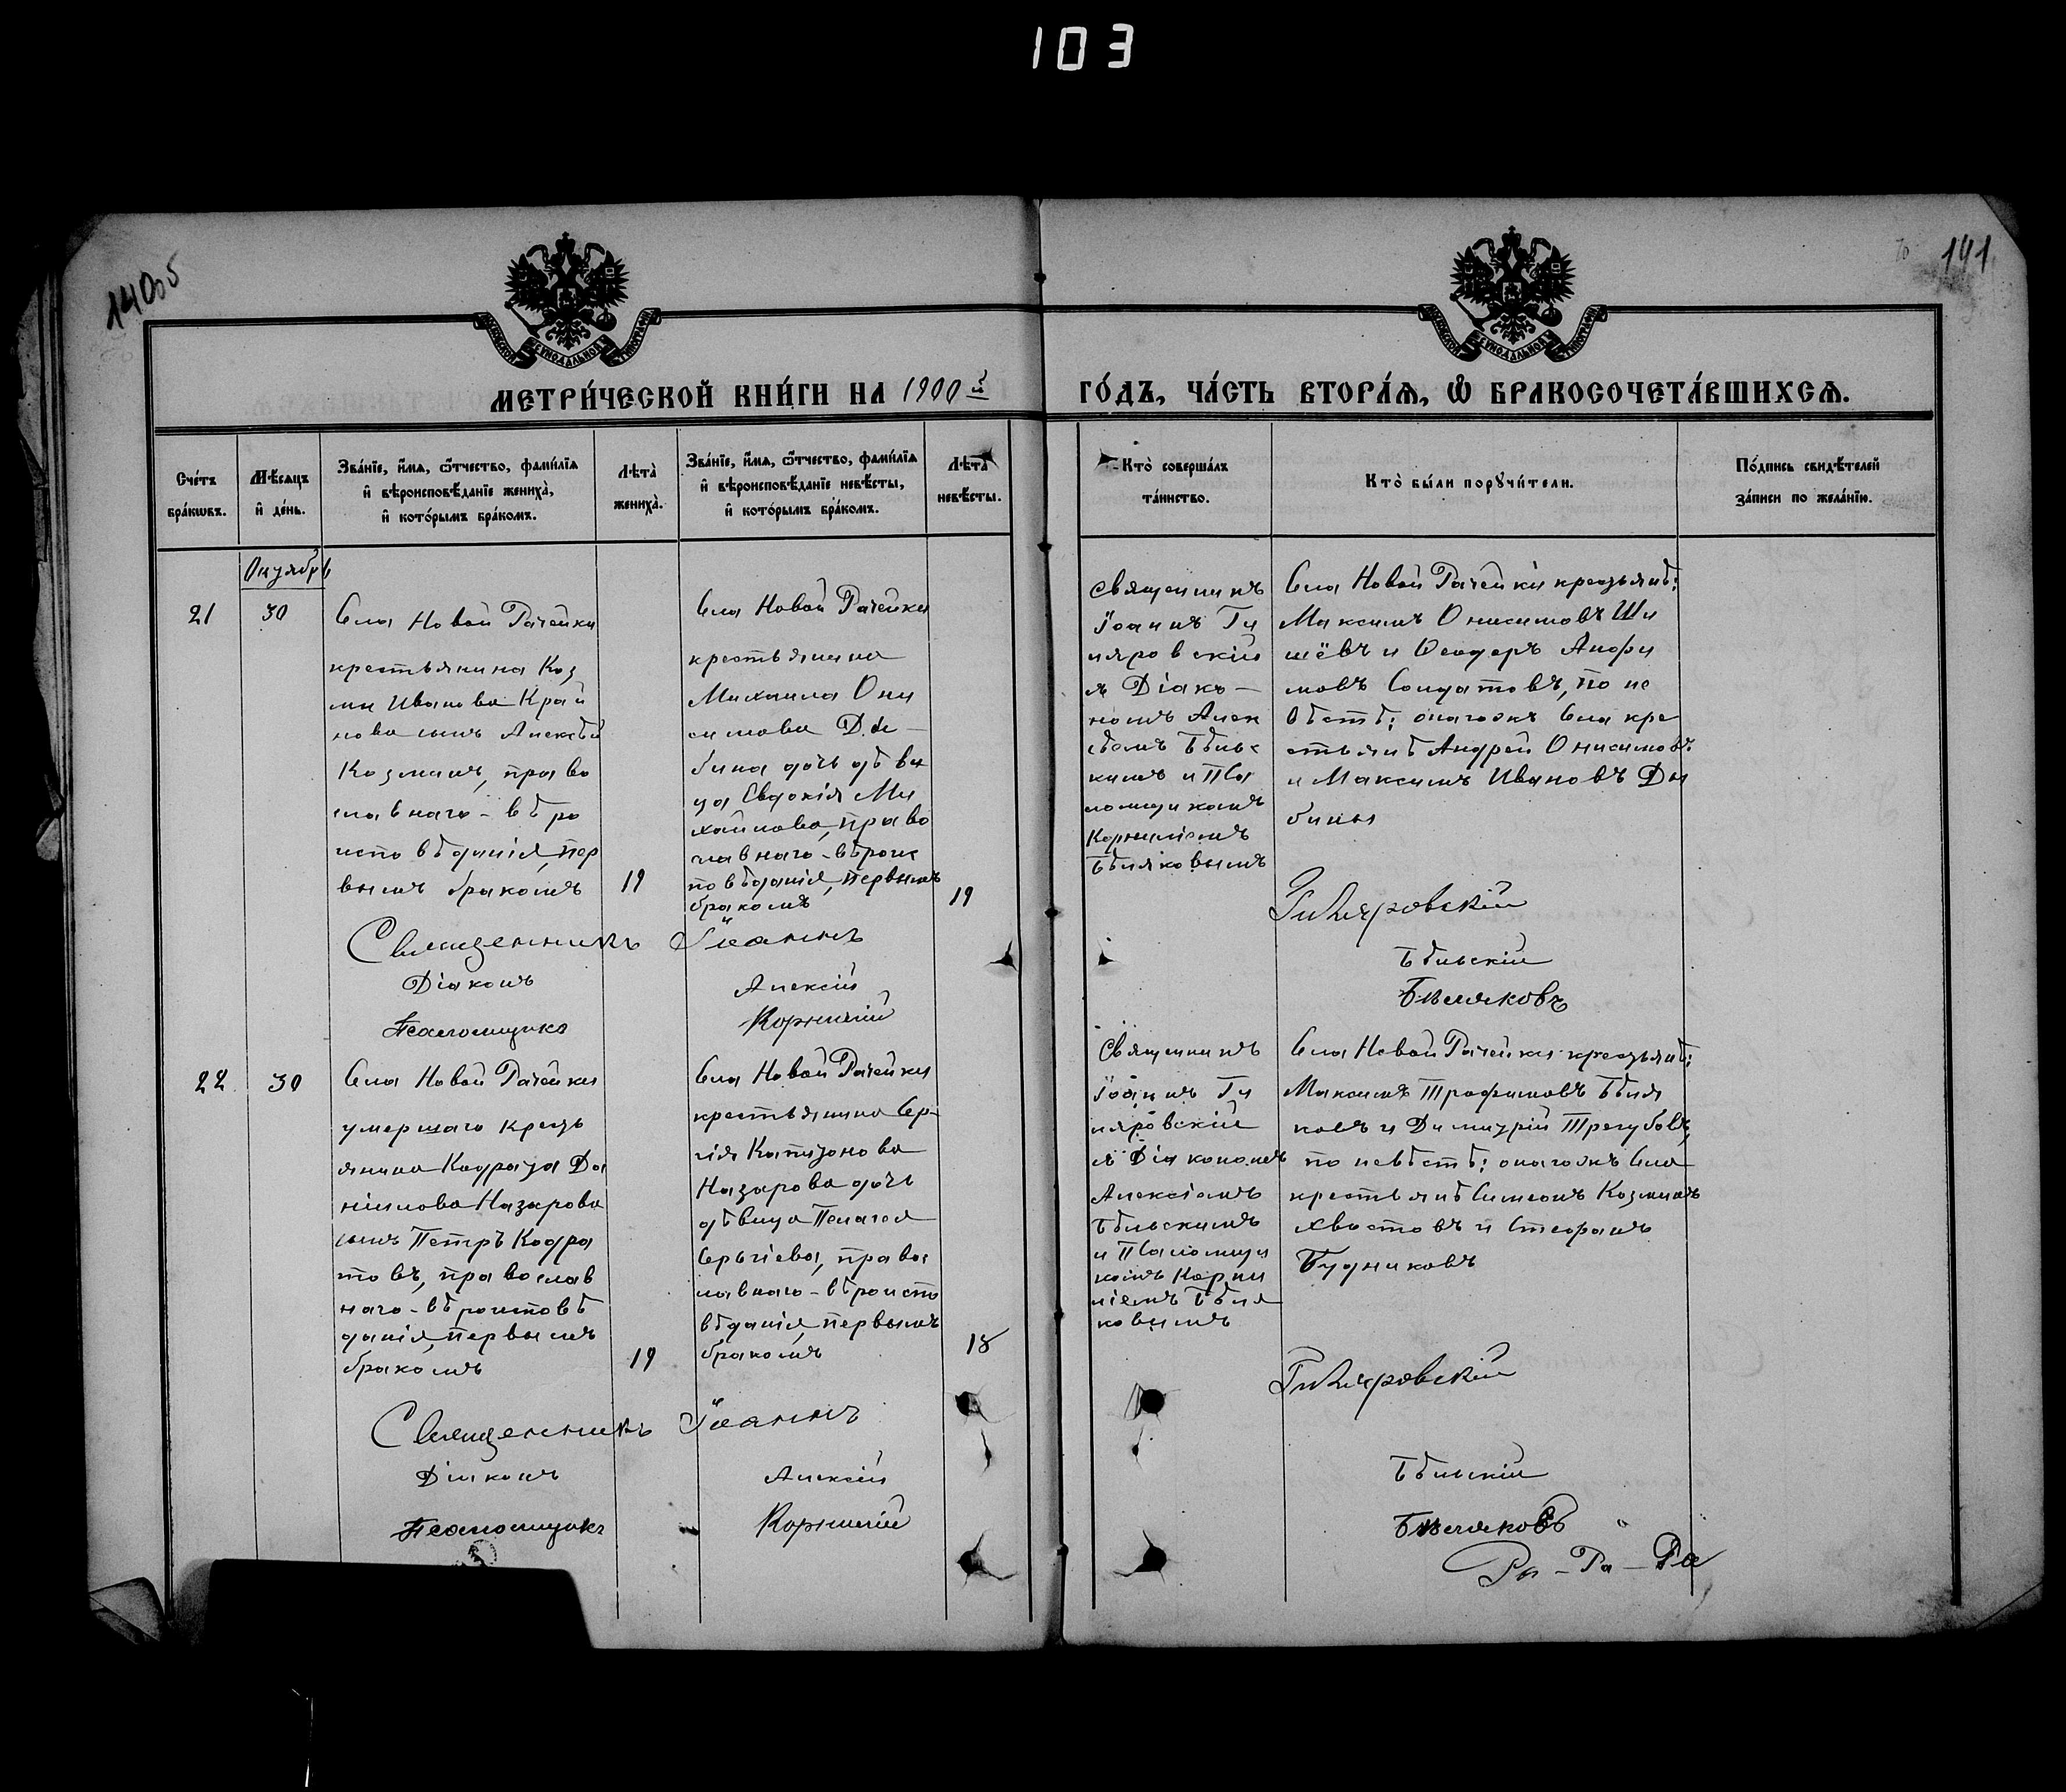 103
140об
141
МЕТРИ́ЧЕСКОЙ КНИ́ГИ НА 1900й
ГО́ДЪ, ЧА́СТЬ ВТОРА́Ѧ, Ѽ БРАКОСОЧЕТА́ВШИХСѦ.
Сче́тъ
бра́кωвъ.
Мѣ́сѧцъ
и҆ де́нь.
Зва́нїе, и҆́мѧ, ѻ҆́тчество, фами́лїѧ
и҆ вѣроисповѣ́данїе жениха̀,
и҆ кото́рымъ бра́комъ.
Лѣта̀
жениха̀.
Зва́нїе, и҆́мѧ, ѻ҆́тчество, фами́лїѧ
и҆ вѣроисповѣ́данїе невѣ́сты,
и҆ кото́рымъ бра́комъ.
Лѣта̀
невѣ́сты.
Кто̀ соверша́лъ
та́инство.
Кто̀ бы́ли порꙋчи́тели.
По́дпись свидѣ́телей
за́писи по жела́нїю.
Октябрь
21
30
Села Новой Рачейки
крестьянина Коз
мы Иванова Край
нова сынъ Алексѣй
Козминъ, право
славнаго-вѣро
исповѣданія, пер
вымъ бракомъ
19
Села Новой Рачейки
крестьянина
Михаила Они
симова Ды-
бина дочь дѣви
ца Евдокія Ми
хайлова, право
славнаго-вѣроис
повѣданія, первымъ
бракомъ
19
Священникъ
Іоаннъ Ги
ляровскій
съ Діако-
номъ Алек
сѣемъ Бѣльс
кимъ и Пса
ломщикомъ
Корниліемъ
Бѣляковымъ
Села Новой Рачейки крестьянѣ:
Максимъ Онисимовъ Ши
шёвъ и Ѳеодоръ Анфи
мовъ Солдатовъ, по не
вѣстѣ: онагожъ Села кре
стьянѣ Андрей Онисимовъ
и Максимъ Ивановъ Ды
бины
Священникъ Іоаннъ Гиляровскій
Діаконъ Алексій Бѣльскій
Псаломщикъ Корнилій Бѣляковъ
22
30
Села Новой Рачейки
умершаго кресть
янина Кодрата Да
ніилова Назарова
сынъ Петръ Кодра
товъ, православ
наго-вѣроисповѣ
данія, первымъ
бракомъ
19
Села Новой Рачейки
крестьянина Сер-
гія Капитонова
Назарова дочь
дѣвица Пелагея
Сергіева, правос
лавнаго-вѣроиспо
вѣданія, первымъ
бракомъ
18
Священникъ
Іоаннъ Ги
ляровскій
съ Діакономъ
Алексіемъ
Бѣльскимъ
и Псаломщи
комъ Корни
ліемъ Бѣля
ковымъ
Села Новой Рачейки крестьянѣ:
Максимъ Трофимовъ Бѣля
ковъ и Димитрій Трегубовъ,
по невѣстѣ: онагожъ Села
крестьянѣ Симеонъ Козминъ
Хвостовъ и Стефанъ
Будниковъ
Священникъ Іоаннъ Гиляровскій
Діаконъ Алексій Бѣльскій
Псаломщикъ Корнилій Бѣляковъ